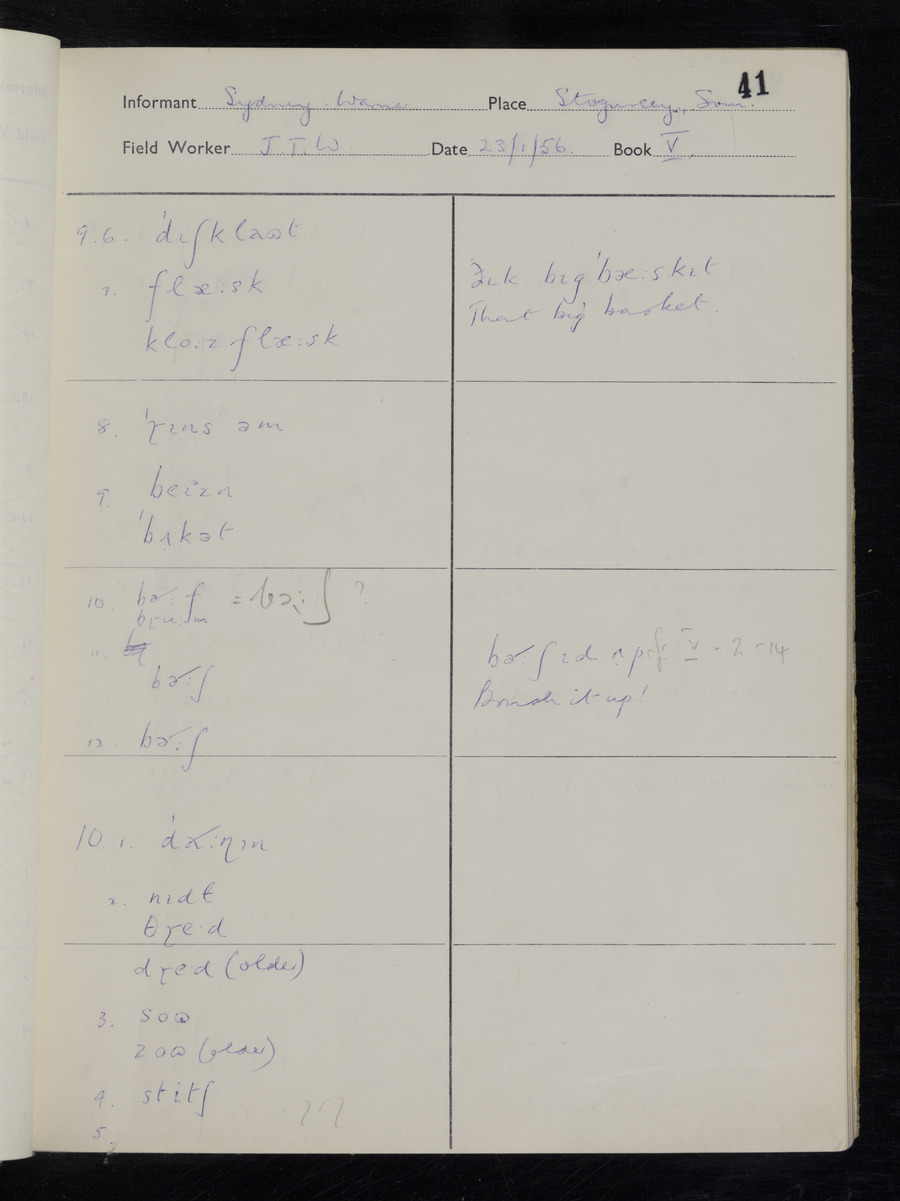 41
Informant Sydney Warner Place Stogursey, Som.
Field Worker J.T.W Date 23/1/56. Book V.
9.6. ˈdɪʃklaɷt
7. flæ:sk
klo:z flæ:sk
ðɪk bɪg ˈbæ:skɪt
That big basket.
8. ˈɽɪns əm
9. beɪzn
ˈbʌkət
10. bɚ:ʃ = bəɽ:ʃ ?
bɽu:m
11.
bɚ:ʃ
bɚ:ʃ ɪd ʌp V-2-14
Brush it up!
12. bɚ:ʃ
10. 1. ˈdɑɽ:nɪn
2. nɪdt
θɽe·d
dɽe·d (older)
3. soɷ
zoɷ (older)
4. stitʃ
5.